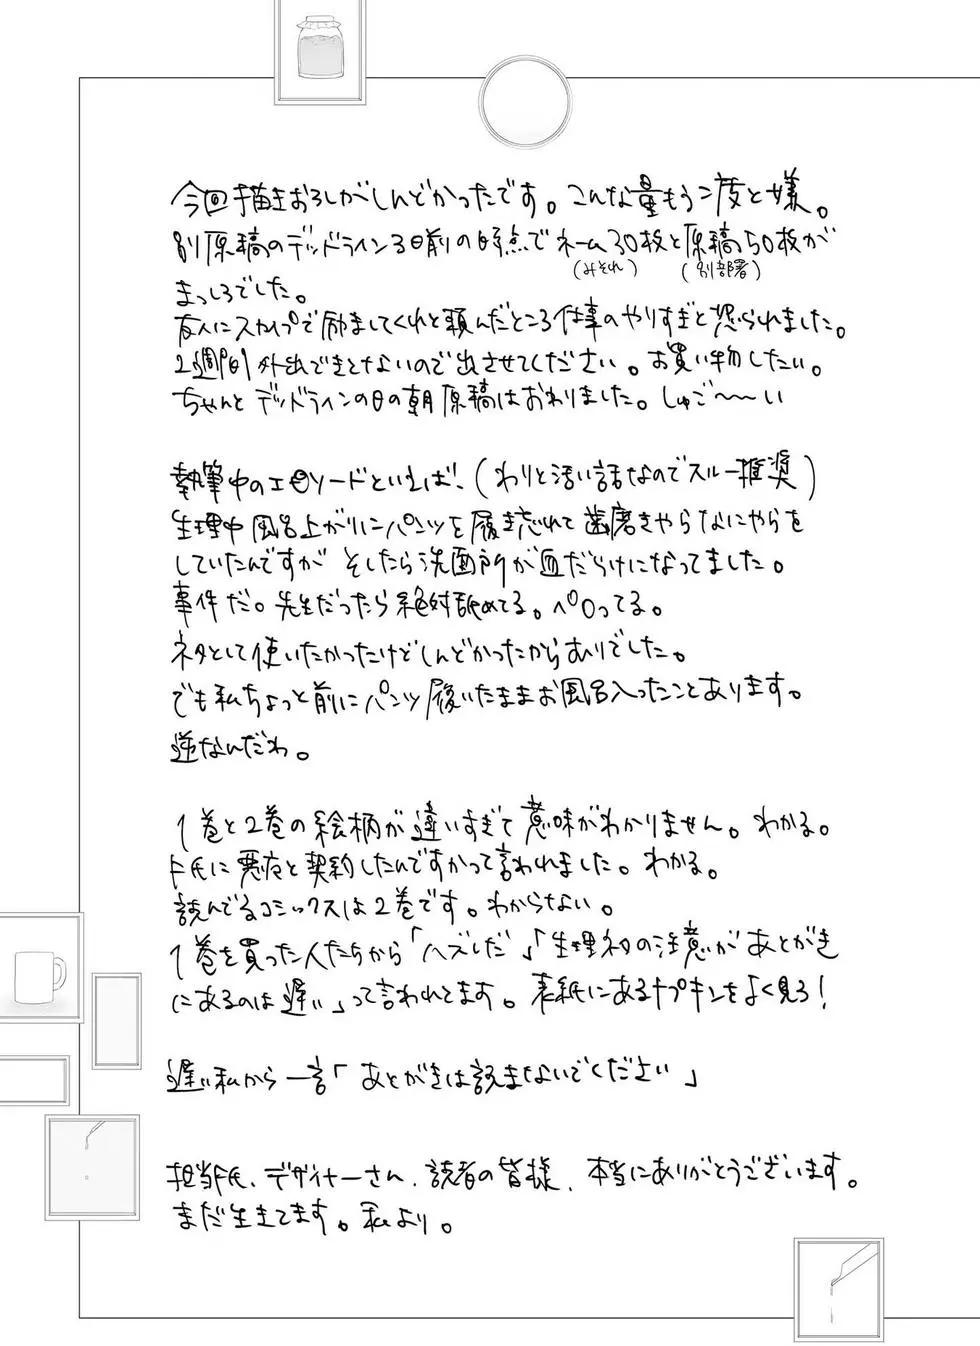 今回描きおろしがしんどかったです。こんな量もう二度と嫌。
別原稿のデッドライン3日前の時点でネーム30枚と原稿50枚が
(みそれ) (別部署)
まっしろでした。
友人にスカイプで励ましてくれと頼んだところ仕事のやりすぎと怒られました。
2週間外出できてないので出させてください。お買い物したい。
ちゃんとデッドラインの日の朝原稿はおわりました。しゅご〜〜い
執筆中のエピソードといえば、(わりと汚い話なのでスルー推奨)
生理中風呂上がりにパンツを履き忘れて歯磨きやらなにやらを
していたんですがそしたら洗面所が血だらけになってました。
事件だ。先生だったら絶対舐めてる。ペロってる。
ネタとして使いたかったけどしんどかったからおわりでした。
でも私ちょっと前にパンツ履いたままお風呂入ったことあります。
逆なんだわ。
1巻と2巻の絵柄が違いすぎて意味がわかりません。わかる。
F氏に悪夜と契約したんですかって言われました。わかる。
読んでるコミックスは2巻です。わからない。
1巻を買った人たちから「ハズレだ」「生理ネタの注意があとがき
にあるのは遅い」って言われてます。表紙にあるナプキンをよく見ろ!
遅い私から一言「あとがきは読まないでください」
担当F氏、デザイナーさん、読者の皆様、本当にありがとうございます。
まだ生きてます。私より。